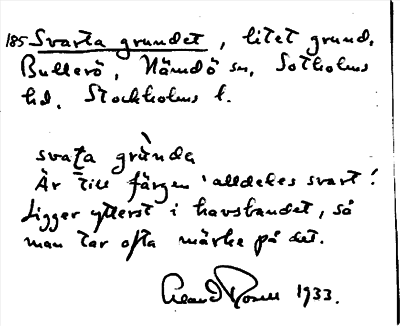 185 Svarta grundet, litet grund,
Bullerö, Nämdö sn, Sotholms
hd, Stockholms l.
svaṯa grùnda
Är till färgen 'alldeles svart'.
Ligger ytterst i havsbandet, så
man tar ofta märke på det.
1933.